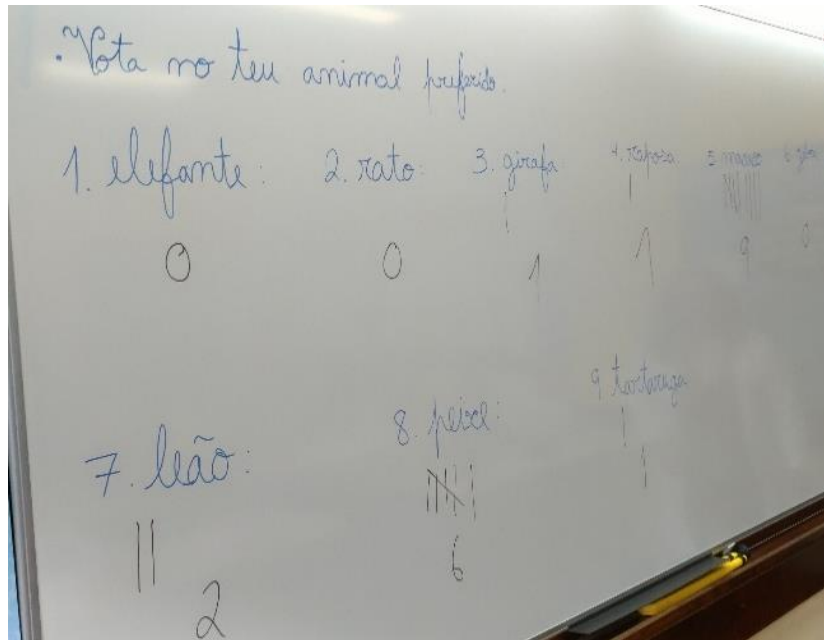 . Vota no teu animal preferido.
1. elefante: 2. rato: 3. girafa 4. raposa 5. macaco 6.
0 0 1 1 9 0
7. leão: 8. peixe: 9. tartaruga
2 6 1